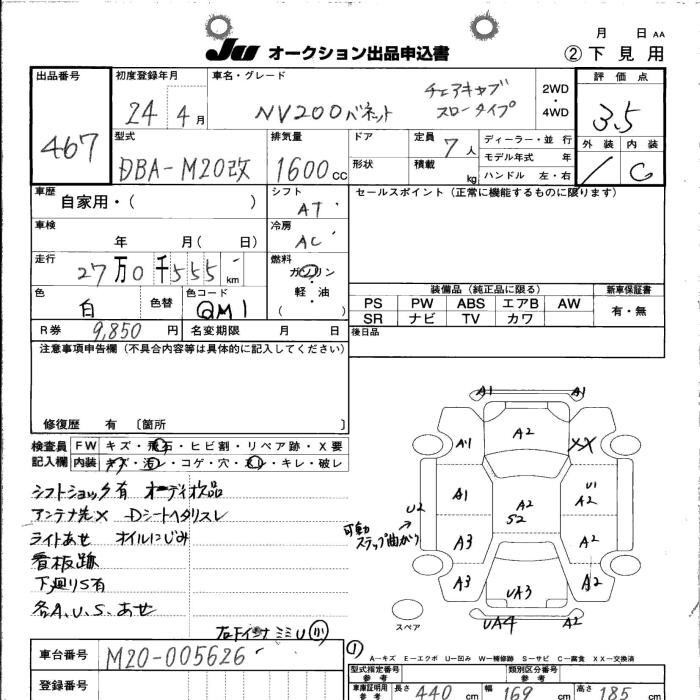 月 日 AA
JU オークション出品申込書
② 下見用
出品番号 467
初度登録年月 24 4月
車名・グレード NV200バネット チェアキャブ スロープタイプ
2WD・4WD
評価点 3.5
外装 内装
/ C
型式 DBA-M20改
排気量 1600cc
ドア
形状
定員 7人
積載 kg
ディーラー・並行
モデル年式 年
ハンドル 左・右
車歴 自家用・( )
シフト AT
セールスポイント(正常に機能するものに限ります)
車検 年 月( 日)
冷房 AC
走行 27万0千555km
燃料 ガソリン・軽油・( )
色 白 色替 色コード QM1
装備品(純正品に限る)
新車保証書
PS PW ABS エアB AW
SR ナビ TV カワ
有・無
R券 9,850円 名変期限 月 日
後日品
注意事項申告欄(不具合内容等は具体的に記入してください)
修復歴 有 〔箇所 〕
検査員記入欄
FW キズ・飛石・ヒビ割・リペア跡・X要
内装 キズ・汚レ・コゲ・穴・スレ・キレ・破レ
シフトショック有 オーディオ欠品
アンテナ先X Dシートヘタリスレ
ライトあせ オイルにじみ
看板跡
下廻りS有
各A.U.S.あせ
A1 A1
A2
A1 XX
A1 A2 S2 U1 A2
U2
可動ステップ曲がり
A3 A2
A3 A2
UA3
UA4 A2
スペア
A-キズ E-エクボ U-凹み W-補修跡 S-サビ C-腐食 XX-交換済
車台番号 M20-005626
登録番号
型式指定番号 参考
類別区分番号 参考
車庫証明用 参考 長さ 440 cm 幅 169 cm 高さ 185 cm